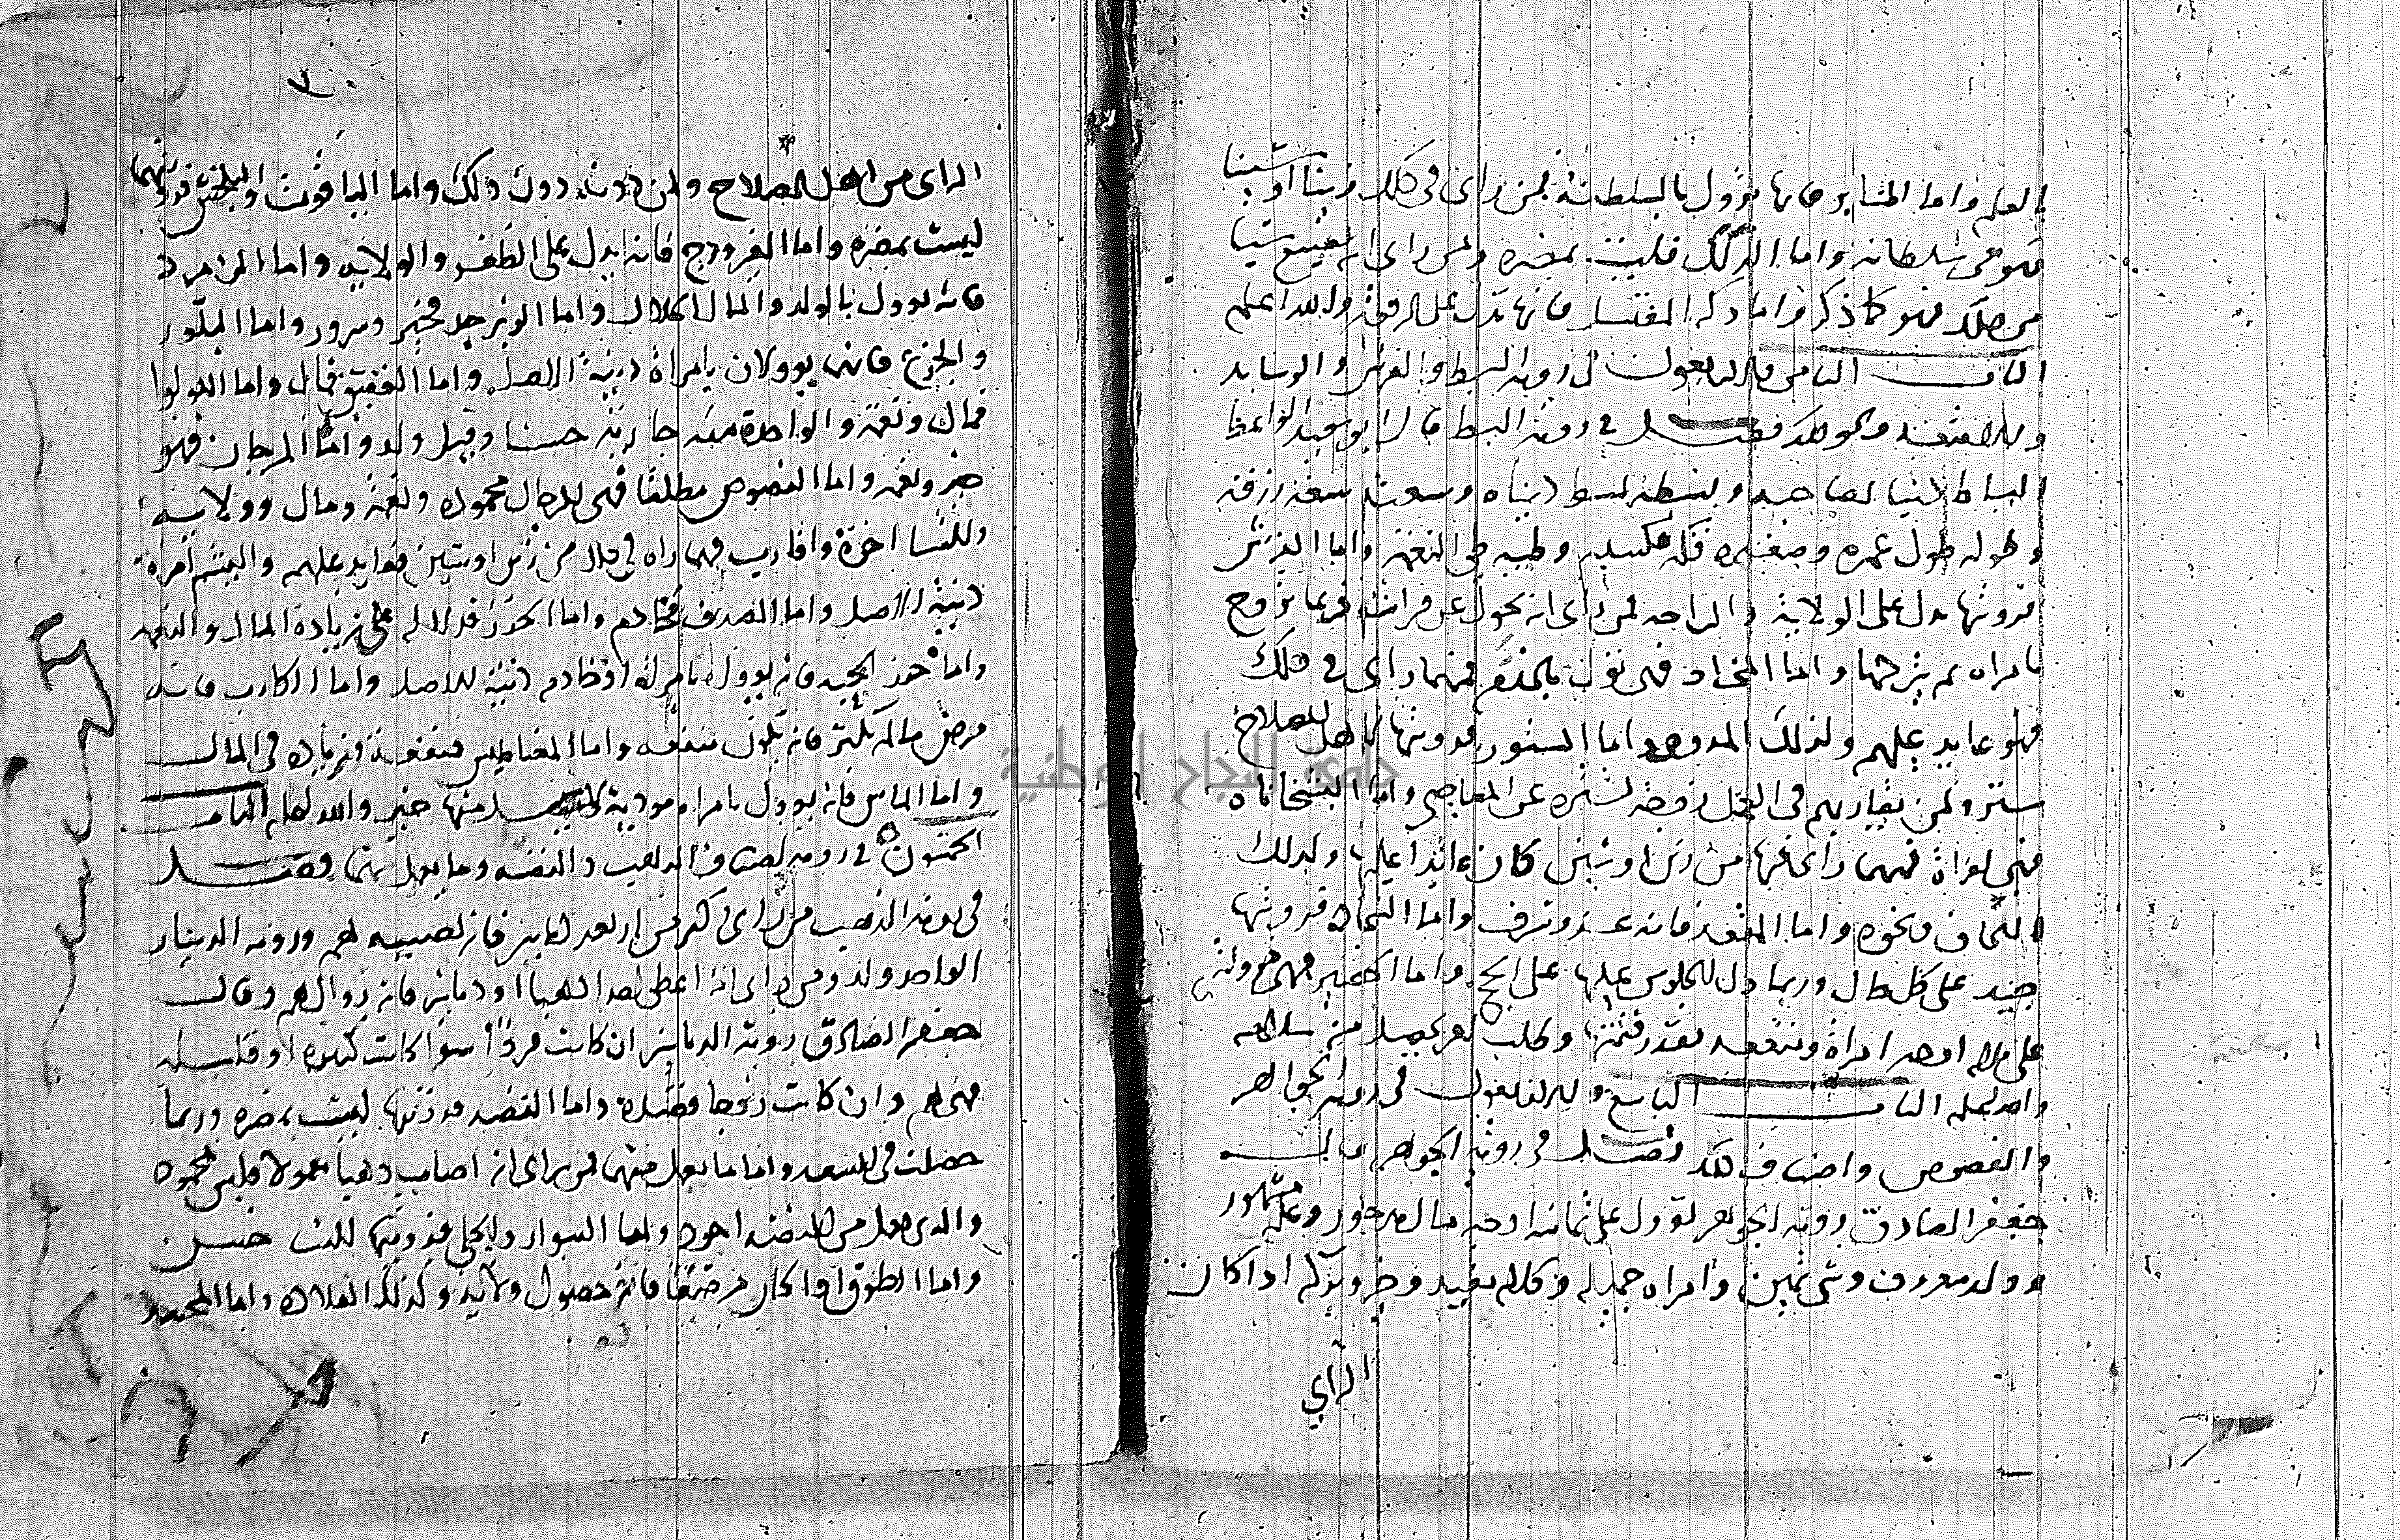 بالعلم واما المنابر فانها تؤول بالسلطانه فمن راى فى ذلك زينا او شينا
فهو فى سلطانه واما الدكك فليست بمضره ومن راى انه يصنع شيا
من ذلك فهو كما ذكر واما دكه المغتسل فانها تدل على الرفق والله اعلم
الباب الثامن والاربعون فى روية البسط والفرش والوسايد
والامتعه ونحو ذلك فصل فى روية البسط قال ابو سعيد الواعظ
البساط دنيا لصاحبه وبسطه بسط دنياه وسعته سعة رزقه
وطوله طول عمره وصغره قلة وطيه طى النعمة واما الفرش
فرويتها تدل على الولاية والراحه فمن راى انه تحول عن فراشه فربما تزوج
بامراه ثم يتركها واما المخاد فهى تؤول بالخدم فمهما راى فى ذلك
فهو عايد عليهم ولذلك واما الستور فرويتها لاهل الصلاح
ستر ولمن يقاربهم فى الفعل ستره عن المعاصى واما البشخاناه
فهى امراة فمهما راى فيها من زين او شين كان عايدا عليها ولذلك
اللحاف ونحوه واما المقعد فانه عز وشرف واما السجاده فرويتها
جيد على كل حال وربما دل الجلوس عليها على الحج واما الحصير فهى
على امراة ومنفعه بقدر قيمتها
والله اعلم الباب التاسع والاربعون فى روية الجواهر
والفصوص واصناف ذلك فصل فى روية الجواهر قال
جعفر الصادق روية الجواهر تؤول على ثمانية اوجه مال مدخور وعلم مشهور
وولد معروف وشى ثمين وامراه جميله وكلام مفيد وخير وبركه اذا كان
الراى
٧٠
الراى من اهل الصلاح ومن دونه دون ذلك واما الياقوت والبلخش فرويتهما
ليست بمضره واما الفيروزج فانه يدل على الظفر والولايه واما الزمرد
فانه يوول بالولد والمال الحلال واما الزبرجد فخير وسرور واما البلور
والجزع فانهما يوولان بامراة دنية الاصل واما العقيق فمال واما اللولوا
فمال ونعمة والواحدة منه جارية حسنا وقيل ولد واما المرجان فهو
خير ونعمه واما الفصوص مطلقا فهى للرجال محموده ونعمة ومال وولايه
وللنسا اخوة واقارب فمهما راه فى ذلك من زين او شين فعايد عليهم واليشم امراة
دنية الاصل واما الصدف فخادم واما الخرز فدلاله على زيادة المال والنعمه
واما خرز فانه يوول بامراة او خادم دنية الاصل واما الكارب فانه
مرض ماله يكثر فانه يكون منفعه واما المغناطيس فمنفعة وزيادة فى المال
واما الماس فانه يوول بامراه موديه منها خير والله اعلم الباب
الخمسون فى روية اصناف الذهب والفضه وما يعمل منهما فصل
فى روية الذهب من راى اكثر من اربعة دنانير فانه نصيبه هم وروية الدينار
الواحد ولد ومن راى انه اعطى لاحد ذهبا او دنانير فانه زوال هم وقال
جعفر الصادق روية الدنانير ان كانت فردا سوا كانت كثيره او قليله
فهى هم وان كانت زوجا واما الفضه فرويتها ليست بمضره وربما
حصلت فى السعد واما ما يعمل منهما فمن راى انه اصاب ذهبا معمولا فليس بمحموده
والذى يعمل من الفضه اجود واما السوار والحلى فرويتها للنسا حسن
واما الطوق اذا كان مرصعا فانه حصول ولاية وكذلك القلاده واما